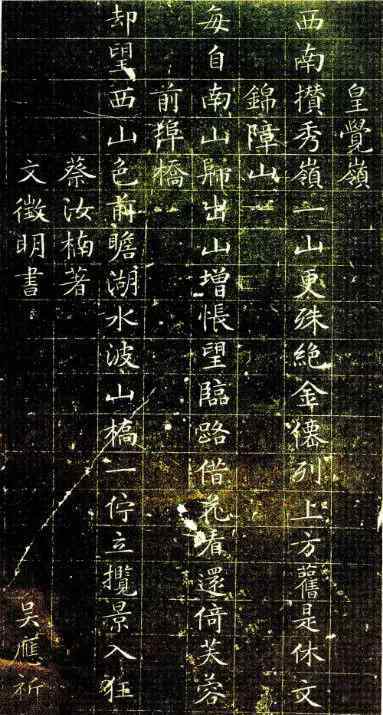 皇覺嶺
西南攢秀嶺一山更殊絶金僊列上方舊是休文
錦障山
每自南山歸出山增悵望臨路借花看還倚芙蓉
前埠橋
却望西山色前瞻湖水波山橋一佇立攬景入狂
蔡汝楠著
文徵明書
吳應祈